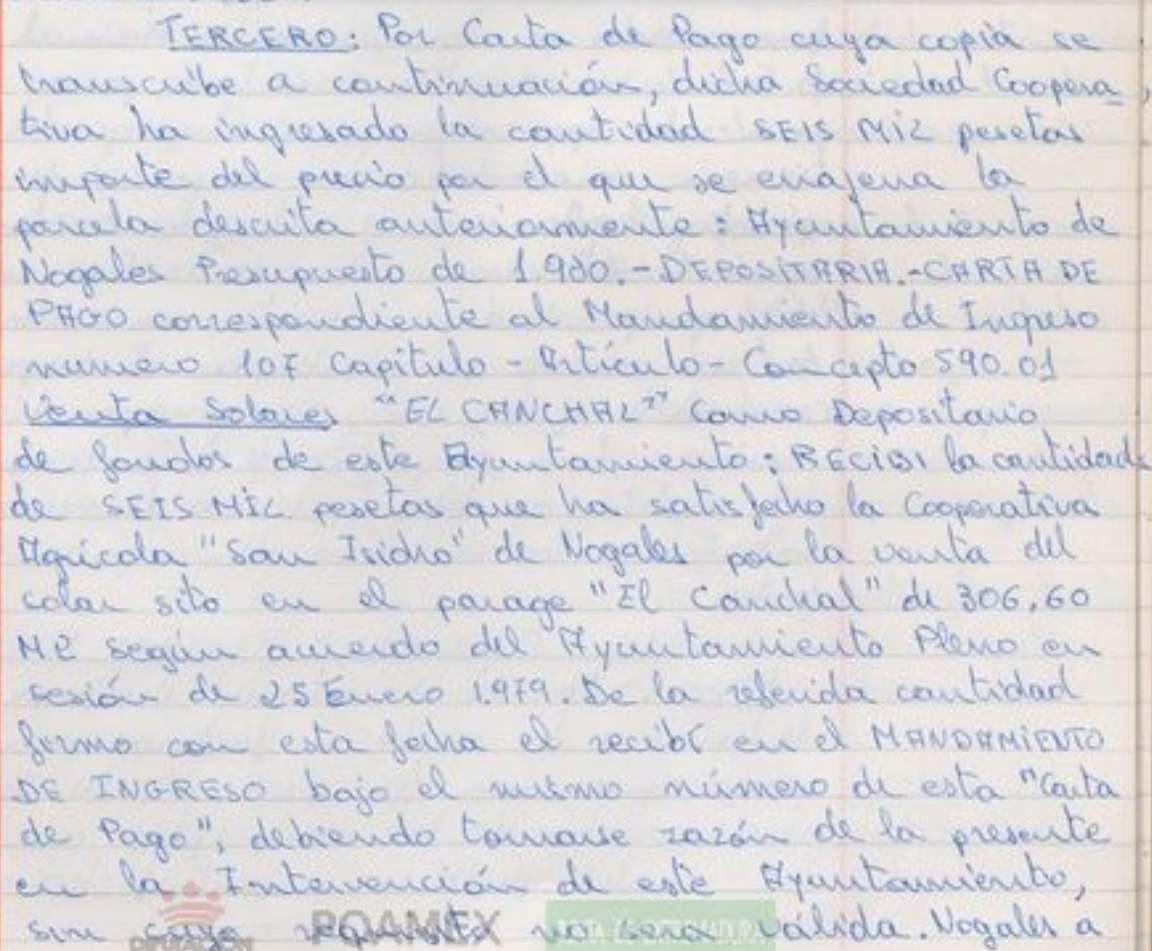 TERCERO: Por Carta de Pago cuya copia se
transcribe a continuación, dicha Sociedad Coopera
tiva ha ingresado la cantidad SEIS MIL pesetas
importe del precio por el que se enajena la
parcela descrita anteriormente: Ayuntamiento de
Nogales Presupuesto de 1.980.-DEPOSITARIA.-CARTA DE
PAGO correspondiente al Mandamiento de Ingreso
numero 107 Capítulo - Artículo - Concepto 590.01
Venta Solares "EL CANCHAL" Como Depositario
de fondos de este Ayuntamiento: RECIBI la cantidad
de SEIS MIL pesetas que ha satisfecho la Cooperativa
Agrícola "San Isidro" de Nogales por la venta del
solar sito en el parage "El Canchal" de 306,60
M2 según acuerdo del Ayuntamiento Pleno en
sesión de 25 Enero 1.979. De la referida cantidad
firmo con esta fecha el recibí en el MANDAMIENTO
DE INGRESO bajo el mismo número de esta "Carta
de Pago", debiendo tomarse razón de la presente
en la Intervención de este Ayuntamiento,
sin cuyo requisito no será válida. Nogales a
DIPUTACIÓN POAMEX JUNTA DE EXTREMADURA